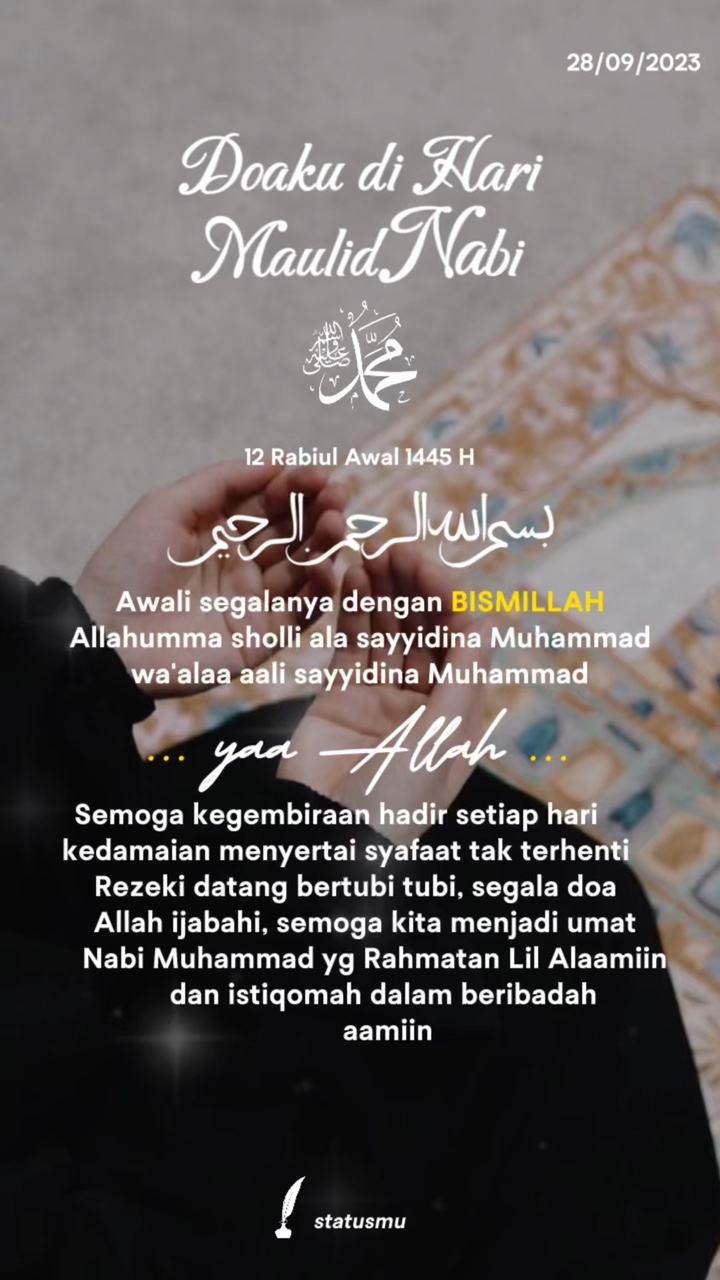 28/09/2023
Doaku di Hari
Maulid Nabi
محمد صلى الله عليه وسلم
12 Rabiul Awal 1445 H
بسم الله الرحمن الرحيم
Awali segalanya dengan BISMILLAH
Allahumma sholli ala sayyidina Muhammad
wa'alaa aali sayyidina Muhammad
... yaa Allah ...
Semoga kegembiraan hadir setiap hari
kedamaian menyertai syafaat tak terhenti
Rezeki datang bertubi tubi, segala doa
Allah ijabahi, semoga kita menjadi umat
Nabi Muhammad yg Rahmatan Lil Alaamiin
dan istiqomah dalam beribadah
aamiin
statusmu